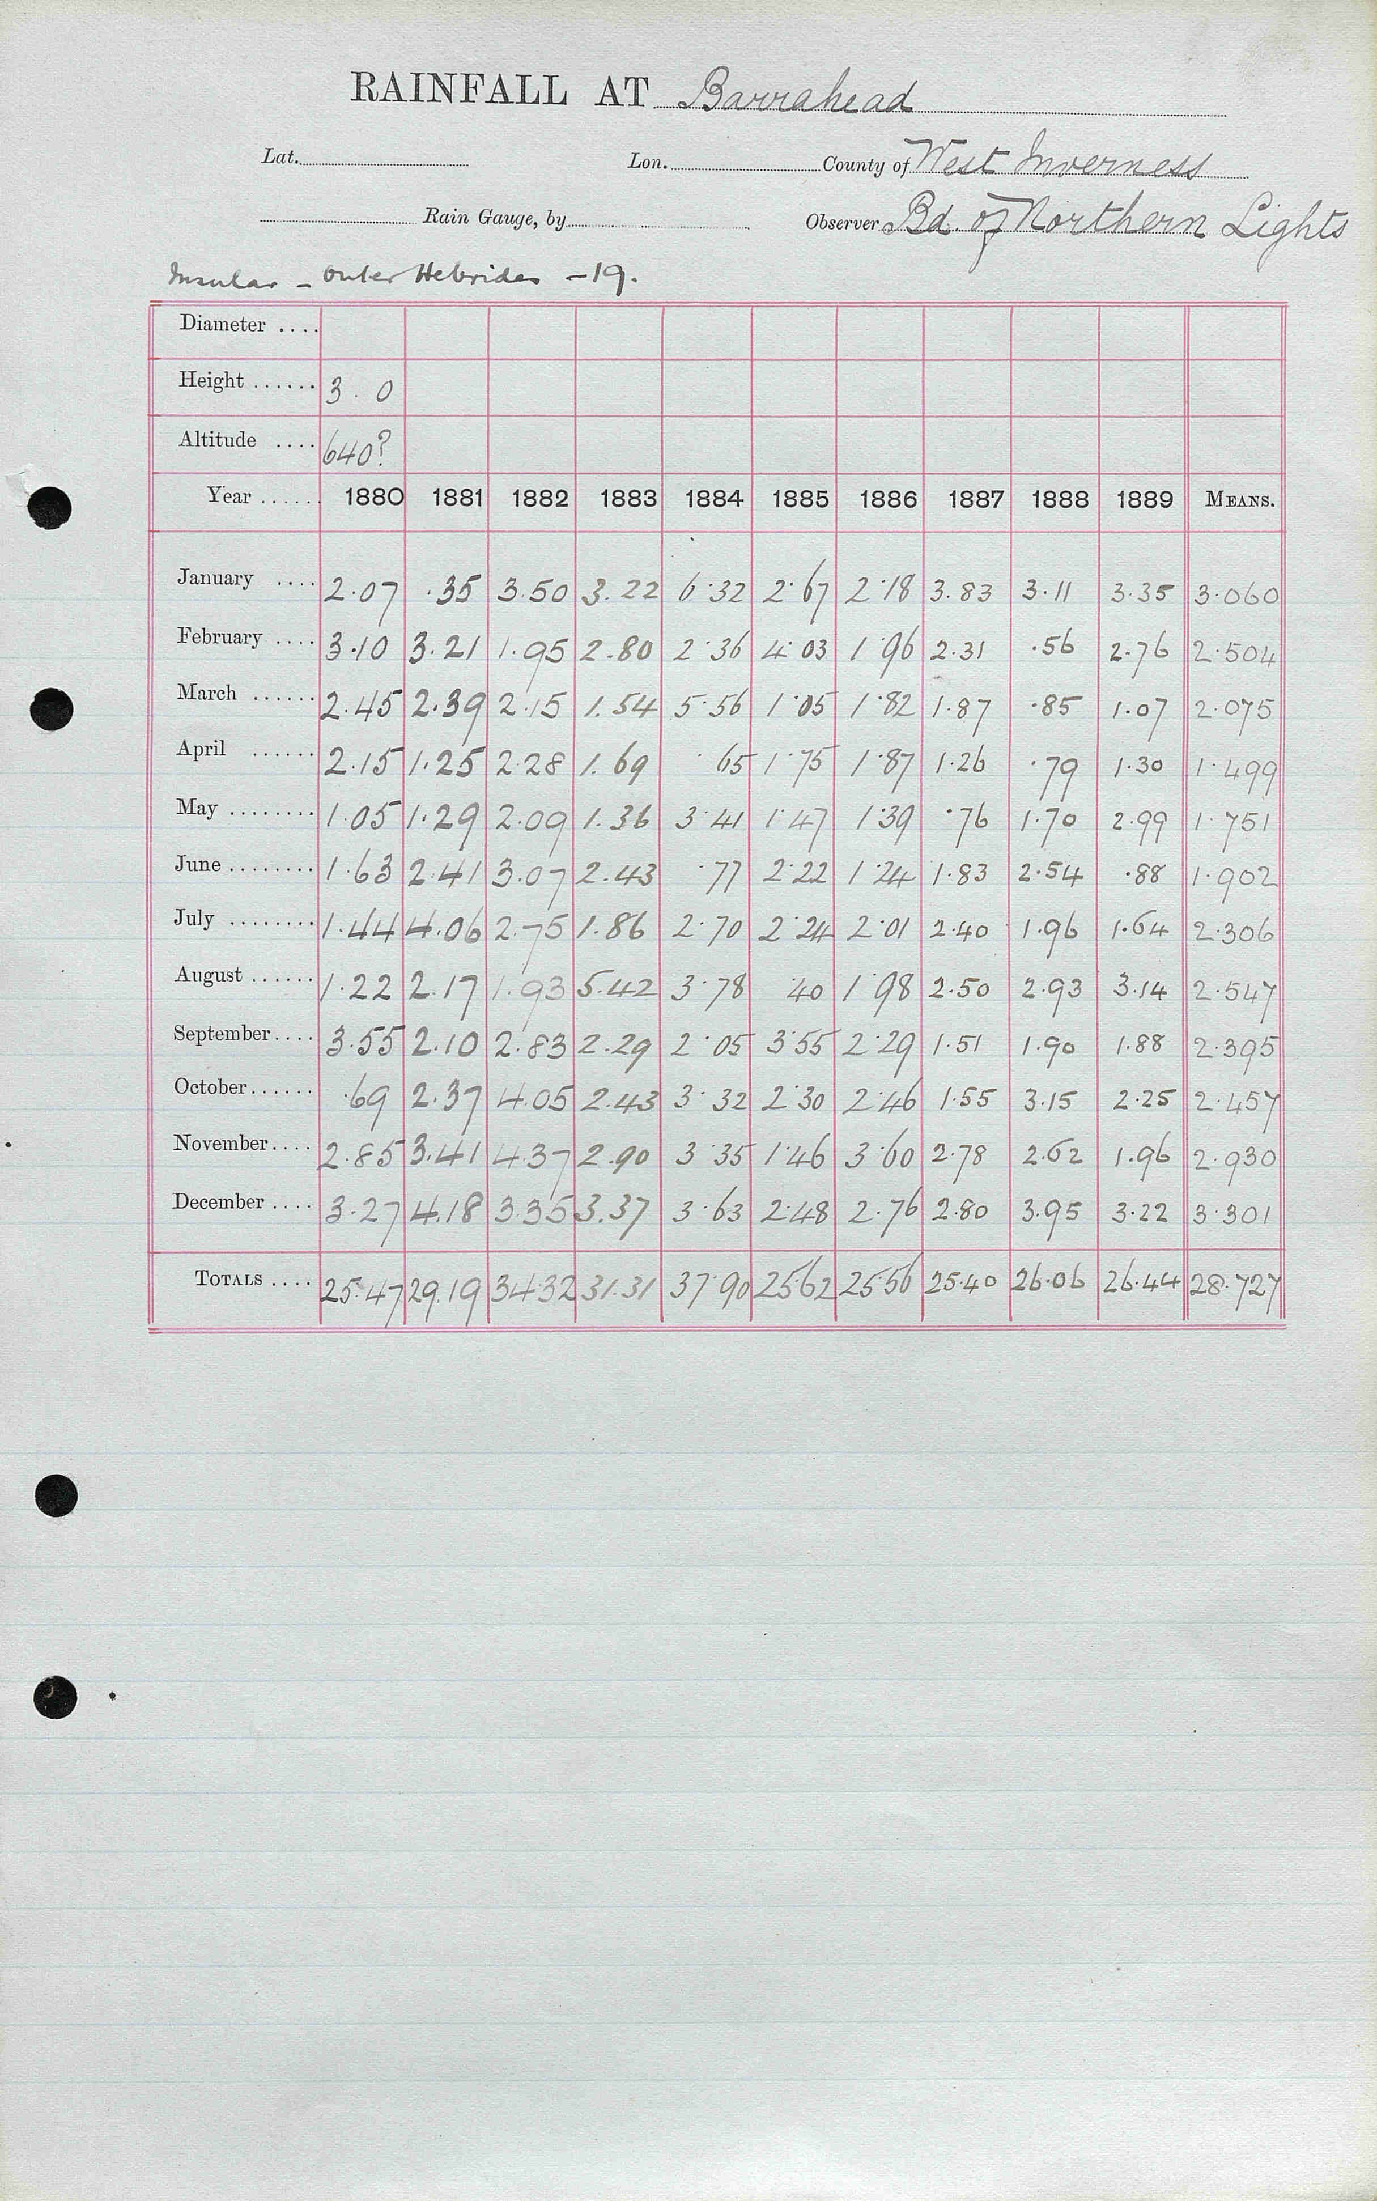 RAINFALL AT Barrahead
Lat. Lon. County of West Inverness
Rain Gauge, by Observer Bd. of Northern Lights
Insular - Outer Hebrides - 19.
Diameter ....
Height ...... 3. 0
Altitude .... 640?
Year ...... 1880 1881 1882 1883 1884 1885 1886 1887 1888 1889 MEANS.
January .... 2.07 .35 3.50 3.22 6.32 2.67 2.18 3.83 3.11 3.35 3.060
February .... 3.10 3.21 1.95 2.80 2.36 4.03 1.96 2.31 .56 2.76 2.504
March ...... 2.45 2.39 2.15 1.54 5.56 1.05 1.82 1.87 .85 1.07 2.075
April ...... 2.15 1.25 2.28 1.69 .65 1.75 1.87 1.26 .79 1.30 1.499
May ........ 1.05 1.29 2.09 1.36 3.41 1.47 1.39 .76 1.70 2.99 1.751
June ........ 1.63 2.41 3.07 2.43 .77 2.22 1.24 1.83 2.54 .88 1.902
July ........ 1.44 4.06 2.75 1.86 2.70 2.24 2.01 2.40 1.96 1.64 2.306
August ...... 1.22 2.17 1.93 5.42 3.78 40 1.98 2.50 2.93 3.14 2.547
September .... 3.55 2.10 2.83 2.29 2.05 3.55 2.29 1.51 1.90 1.88 2.395
October ...... .69 2.37 4.05 2.43 3.32 2.30 2.46 1.55 3.15 2.25 2.457
November .... 2.85 3.41 4.37 2.90 3.35 1.46 3.60 2.78 2.62 1.96 2.930
December .... 3.27 4.18 3.35 3.37 3.63 2.48 2.76 2.80 3.95 3.22 3.301
TOTALS .... 25.47 29.19 34.32 31.31 37.90 25.62 25.56 25.40 26.06 26.44 28.727